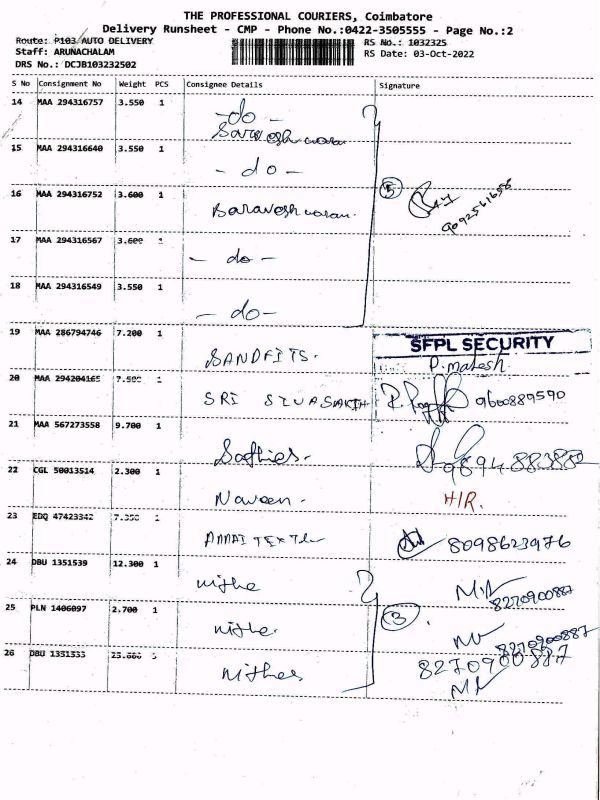 THE PROFESSIONAL COURIERS, Coimbatore
Delivery Runsheet - CMP - Phone No.:0422-3505555 - Page No.:2
Route: P103 AUTO DELIVERY
RS No.: 1032325
Staff: ARUNACHALAM
RS Date: 03-Oct-2022
DRS No.: DCJB103232502
S No Consignment No Weight PCS Consignee Details Signature
14 MAA 294316757 3.550 1 -do-
Saraveshwaran
15 MAA 294316640 3.550 1 -do-
16 MAA 294316752 3.600 1 Saraveshwaran. 5 9092561656
17 MAA 294316567 3.600 1 -do-
18 MAA 294316549 3.550 1 -do-
19 MAA 286794746 7.200 1 SANDFITS. SFPL SECURITY
P.mahesh
20 MAA 294204165 7.500 1 SRI SIVASAKTHI 9600889590
21 MAA 567273558 9.700 1 Sathies.
22 CGL 50013514 2.300 1 Naveen. H/R.
23 EDQ 47423342 7.350 1 8098623976
24 DBU 1351539 12.300 1 nithe 8270900887
25 PLN 1406097 2.700 1 nithe 3 8270900887
26 DBU 1351533 Nithees 8270900887